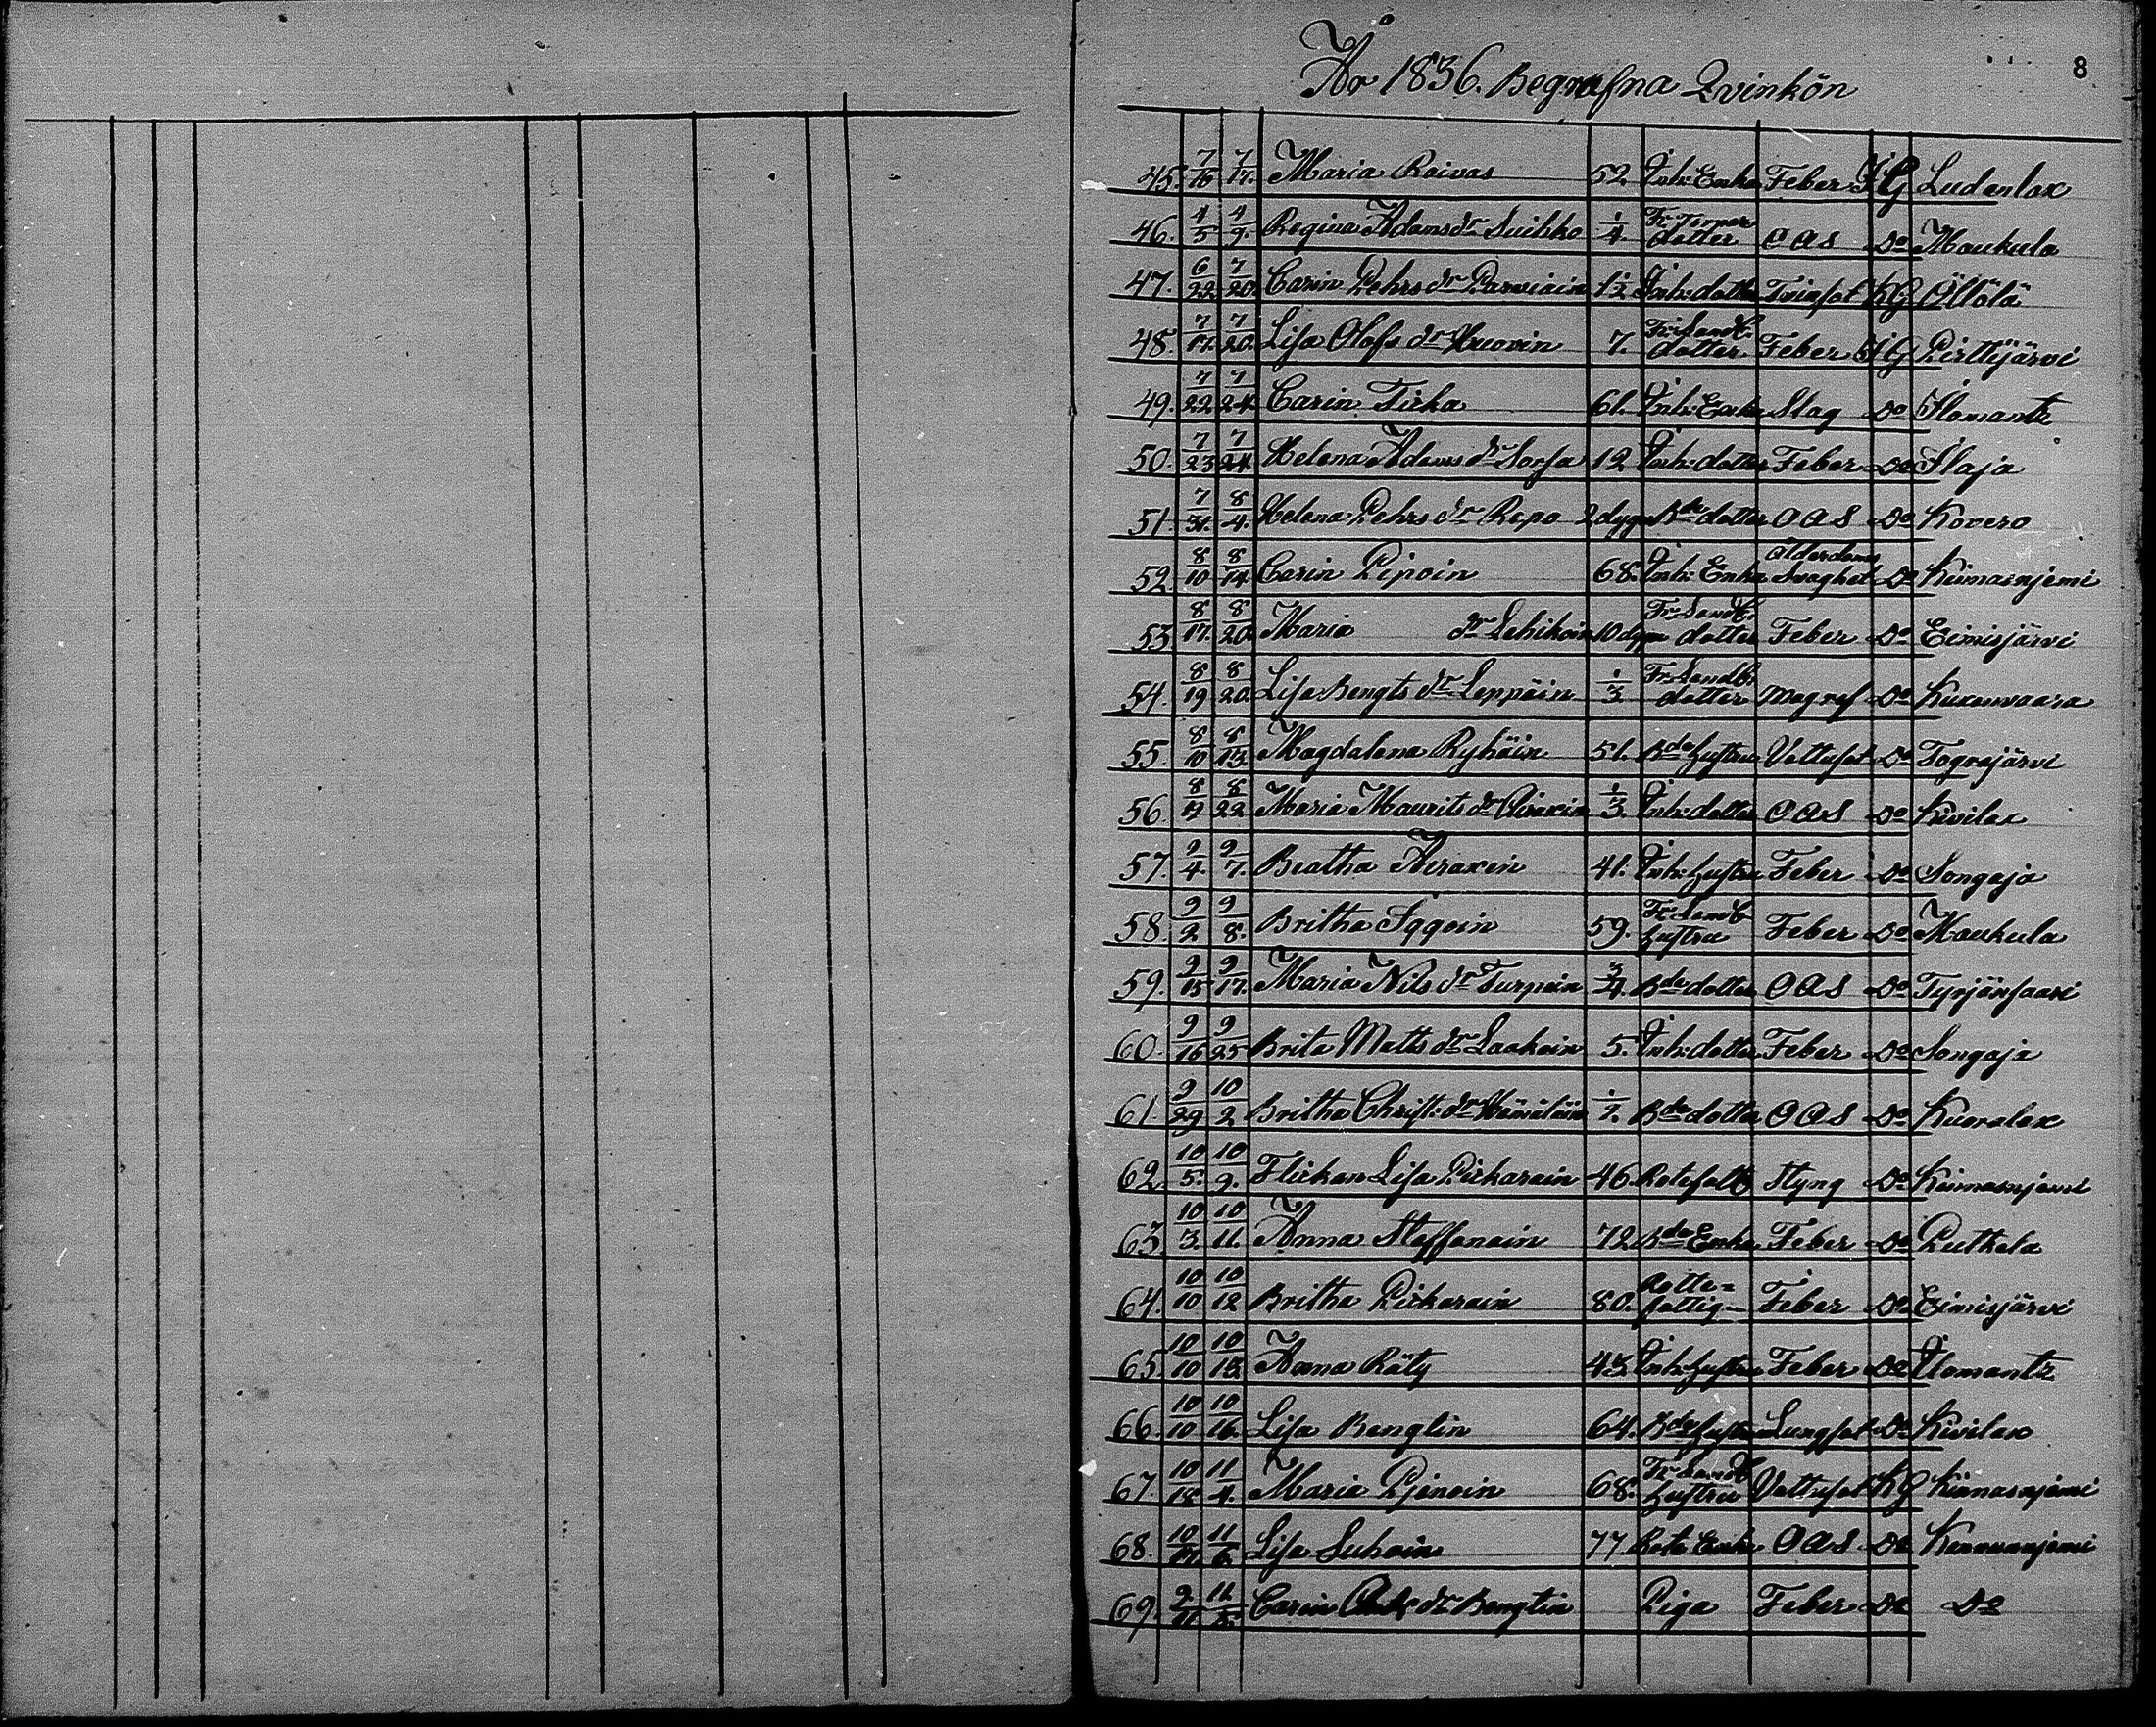 8
År 1836. Begrafna Qvinkön
45. 7/16 7/17. Maria Roivas 52 Inh: Enka Feber J G Ludenlax
46. 4/5 4/9. Regina Adams dr Suihko 1/4 Fr Torpar dotter O A S Do Maukula
47. 6/22 7/20 Carin Pehrs dr Parviain 1½ Inh: dotter Tvinsot K G Öllölä
48. 7/17. 7/20. Lisa Olofs dr Huovin 7. Fr: Landb. dotter Feber J G Pirttijärvi
49. 7/22 7/24 Carin Tirka 61. Inh: Enka Slag Do Ilomants
50. 7/23 7/24. Helena Adams dr Sorsa 12 Inh: dotter Feber Do Ilaja
51. 7/31. 8/4. Helena Pehrs dr Repo 2 dygn Bde dotter O A S Do Kovero
52. 8/10 8/14 Carin Piipoin 68. Inh: Enka Ålderdoms Svaghet Do Kiimasnjemi
53 8/17. 8/20 Maria dr Lehikoin 10 dygn Fr: Landb. dotter Feber Do Eimisjärvi
54. 8/19 8/20. Lisa Bengts dr Leppäin 1/3 Fr: Landb. dotter Magref Do Kuxenvaara
55. 8/10 8/13. Magdalena Ryhäin 51. Bde hustru Vattusot Do Tograjärvi
56. 8/17 8/22 Maria Maurits dr 1/3. Inh: dotter O A S Do Kivilax
57. 9/4. 9/7. Beatha Airaxin 41. Inh: hustru Feber Do Songaja
58. 9/2 9/8. Britha Iggoin 59. Fr: Landb hustru Feber Do Maukula
59. 9/15 9/17. Maria Nils dr Turpoin 3/4. Bde dotter O A S Do Tyrjänsaari
60. 9/16 9/25 Brita Matts dr Laakoin 5. Inh: dotter Feber Do Songaja
61. 9/29 10/2 Britha Christ: dr Hämäläin 1/2. Bde dotter O A S Do Kuoralax
62. 10/5. 10/9. Flickan Lisa Pickarain 46. Rotefatt Styng Do Kiimasnjemi
63 10/3. 10/11. Anna Staffanain 72. Bde Enka Feber Do Putkela
64. 10/10 10/12 Britha Pickarain 80. Rotte= fattig Feber Do Eimisjärvi
65. 10/10 10/13 Anna Räty 43 Inh: hustru Feber Do Ilomants
66. 10/10 10/16. Lisa Bengtin 64. Bde hustru Lungsot Do Kivilax
67. 10/18 11/4. Maria Pjenoin 68. Fr: Landb hustru Vattusot K G Kiimasnjemi
68. 10/17. 11/6. Lisa Suhoin 77 Rote Enka O A S Do Kiimasnjemi
69. 9/11. 11/5. Carin dr Bengtin Piga Feber Do Do